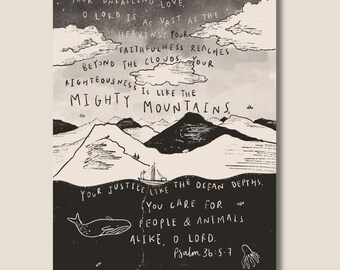 YOUR UNFAILING LOVE,
O LORD IS AS VAST AS THE
HEAVENS; YOUR
FAITHFULNESS REACHES
BEYOND THE CLOUDS. YOUR
RIGHTEOUSNESS IS LIKE THE
MIGHTY MOUNTAINS,
YOUR JUSTICE LIKE THE OCEAN DEPTHS.
YOU CARE FOR
PEOPLE & ANIMALS
ALIKE, O LORD.
Psalm 36:5-7